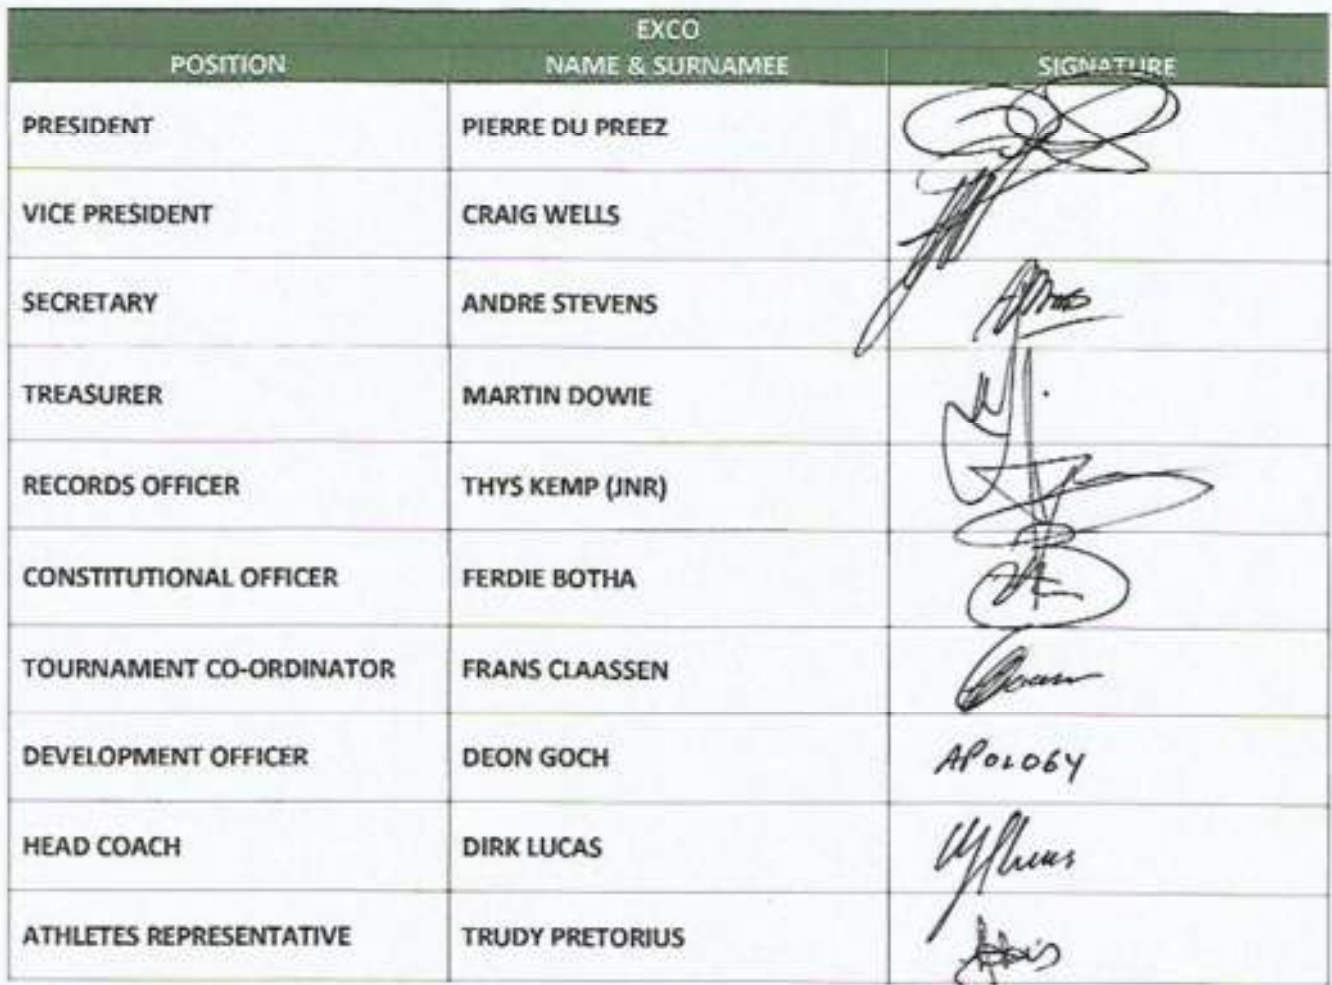 EXCO
POSITION NAME & SURNAMEE SIGNATURE
PRESIDENT PIERRE DU PREEZ
VICE PRESIDENT CRAIG WELLS
SECRETARY ANDRE STEVENS
TREASURER MARTIN DOWIE
RECORDS OFFICER THYS KEMP (JNR)
CONSTITUTIONAL OFFICER FERDIE BOTHA
TOURNAMENT CO-ORDINATOR FRANS CLAASSEN
DEVELOPMENT OFFICER DEON GOCH APOLOGY
HEAD COACH DIRK LUCAS
ATHLETES REPRESENTATIVE TRUDY PRETORIUS